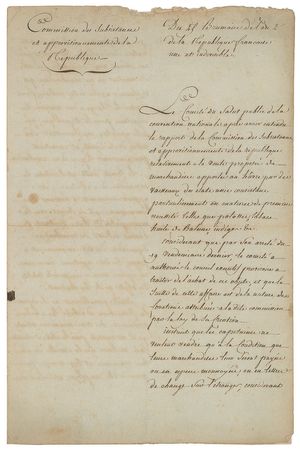 Commission des Subsistances
et approvisionnements de la
République
Du 25 Brumaire de l'an 2e
de la République française
une et indivisible.
Le Comité du Salut public de la
convention nationale après avoir entendu
le rapport de la Commission des Subsistances
et approvisionnements de la république
relativement à la vente proposée de
marchandises apportées au hâvre par des
vaisseaux des états unis consistant
particulièrement en matières de première
nécessité telles que potasse,
huile de Baleine, indigo &c
Considérant que par son arrêté du
19 vendemiaire dernier le comité a
authorisé le conseil exécutif provisoire à
traiter de l'achat de ces objets, et que la
suite de cette affaire est de la nature des
fonctions attribuées à la dite commission
par la loy de sa création.
instruit que les capitaines ne
veulent vendre qu'à la condition que
leurs marchandises leur seront payées
ou en espèces monnoyées, ou en lettres
de change sur l'étranger, considérant